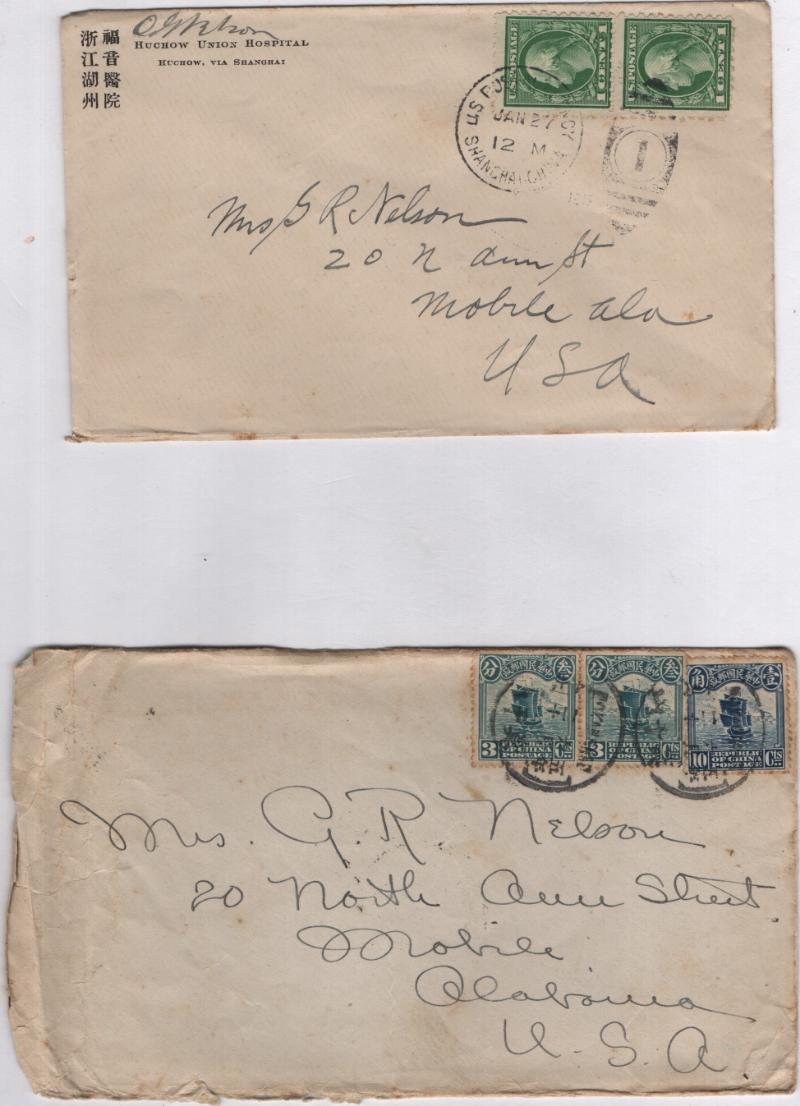 Nelson
HUCHOW UNION HOSPITAL
HUCHOW, VIA SHANGHAI
福音醫院
浙江湖州
U.S. POSTAGE
1 CENT 1
U.S. POSTAGE
1 CENT 1
U.S. POS
NCY
JAN 27
12 M
SHANGHAI-CHINA
1
Mrs G R Nelson
20 N Ann St
Mobile Ala
USA
分 中華民國郵政 叁
3 Cts
REPUBLIC OF CHINA
POSTAGE
分 中華民國郵政 叁
3 Cts
REPUBLIC OF CHINA
POSTAGE
角 中華民國郵政 壹
10 Cts
REPUBLIC OF CHINA
POSTAGE
Mrs. G. R. Nelson
20 North Ann Street
Mobile
Alabama
U. S. A